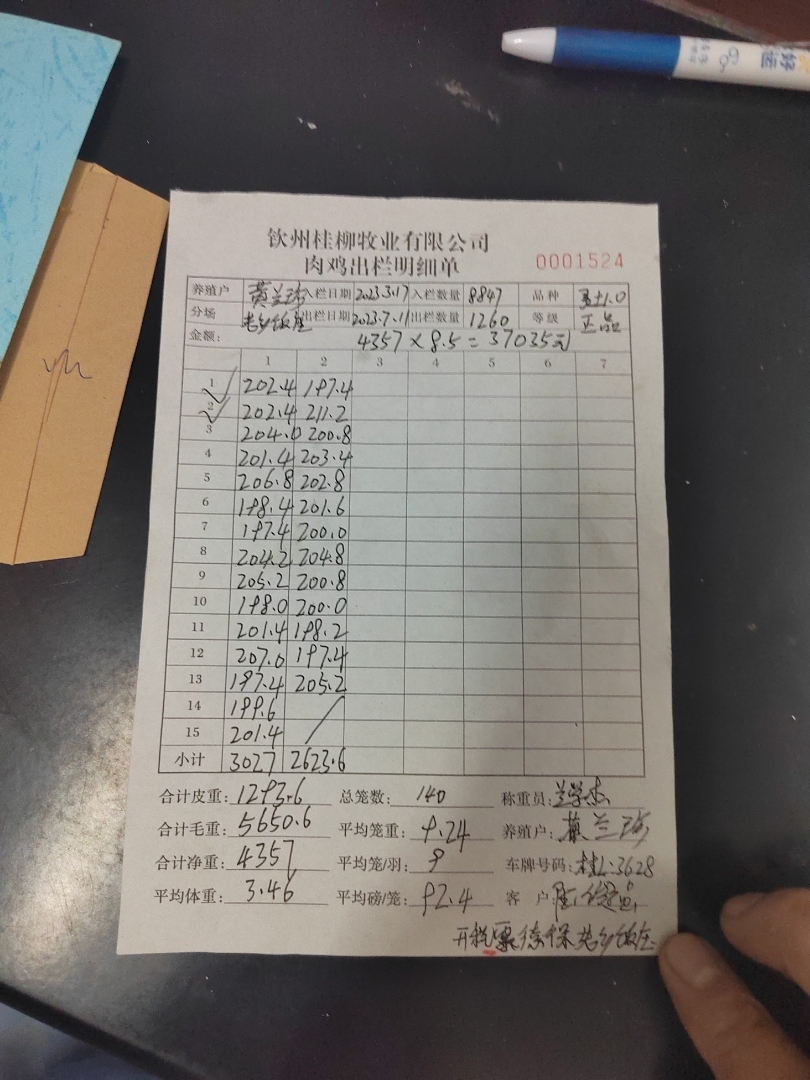 好运
钦州桂柳牧业有限公司
肉鸡出栏明细单 0001524
养殖户 黄兰珍 入栏日期 2023.3.17 入栏数量 8847 品种
分场 老乡饭庄 出栏日期 2023.7.11 出栏数量 1260 等级 正品
金额: 4357 × 8.5 = 37035元
1 2 3 4 5 6 7
1 202.4 197.4
2 202.4 211.2
3 204.0 200.8
4 201.4 203.4
5 206.8 202.8
6 198.4 201.6
7 197.4 200.0
8 204.2 204.8
9 205.2 200.8
10 198.0 200.0
11 201.4 198.2
12 207.0 197.4
13 197.4 205.2
14 199.6
15 201.4
小计 3027 2623.6
合计皮重: 1293.6 总笼数: 140 称重员:
合计毛重: 5650.6 平均笼重: 9.24 养殖户: 黄兰珍
合计净重: 4357 平均笼/羽: 9 车牌号码: 3628
平均体重: 3.46 平均磅/笼: 92.4 客户
开税票德保老乡饭庄